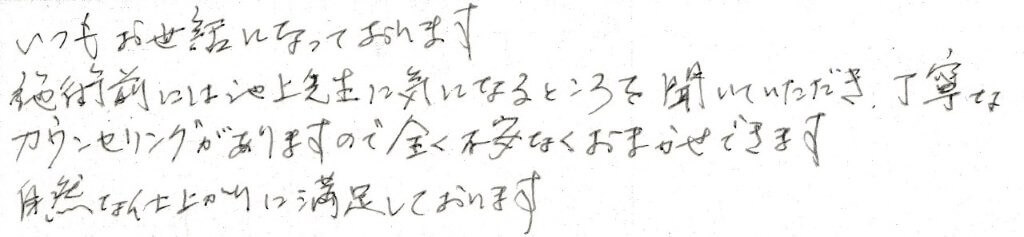 いつもお世話になっております
施術前には池上先生に気になるところを聞いていただき、丁寧な
カウンセリングがありますので全く不安なくおまかせできます
自然な仕上がりに満足しております